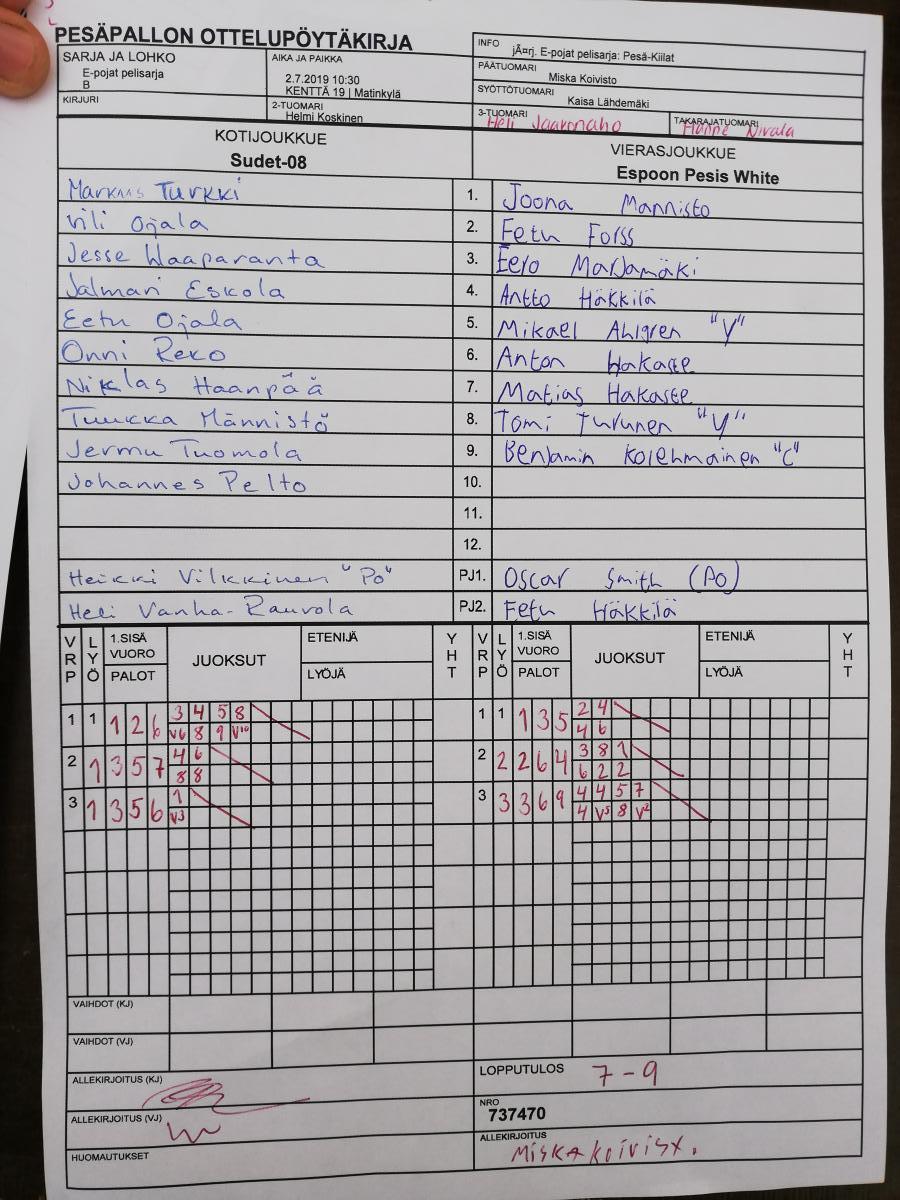 PESÄPALLON OTTELUPÖYTÄKIRJA
SARJA JA LOHKO
E-pojat pelisarja
B
AIKA JA PAIKKA
2.7.2019 10:30
KENTTÄ 19 | Matinkylä
KIRJURI
2-TUOMARI
Helmi Koskinen
INFO jÃ¤rj. E-pojat pelisarja: Pesä-Kiilat
PÄÄTUOMARI Miska Koivisto
SYÖTTÖTUOMARI Kaisa Lähdemäki
3-TUOMARI Heli Jaaronaho
TAKARAJATUOMARI Hanne Nivala
KOTIJOUKKUE
Sudet-08
VIERASJOUKKUE
Espoon Pesis White
Markus Turkki 1. Joona Mannisto
Vili Ojala 2. Eetu Forss
Jesse Haaparanta 3. Eero Marjamäki
Jalmari Eskola 4. Antto Häkkilä
Eetu Ojala 5. Mikael Ahlgren "V"
Onni Reko 6. Anton Hakaste
Niklas Haanpää 7. Matias Hakaste
Tuukka Männistö 8. Tomi Turunen "V"
Jermu Tuomola 9. Benjamin Kolehmainen "C"
Johannes Pelto 10.
11.
12.
Heikki Vilkkinen "Po" PJ1. Oscar Smith (Po)
Heli Vanha-Rauvola PJ2. Eetu Häkkilä
VRP LYÖ 1.SISÄ VUORO PALOT JUOKSUT ETENIJÄ LYÖJÄ YHT VRP LYÖ 1.SISÄ VUORO PALOT JUOKSUT ETENIJÄ LYÖJÄ YHT
1 1 1 2 6 3 4 5 8 1 1 1 3 5 2 4
V6 8 9 V10 4 6
2 1 3 5 7 4 6 2 2 2 6 4 3 8 1
8 8 6 2 2
3 1 3 5 6 1 3 3 3 6 9 4 4 5 7
V3 4 V5 8 V2
VAIHDOT (KJ)
VAIHDOT (VJ)
ALLEKIRJOITUS (KJ)
ALLEKIRJOITUS (VJ)
HUOMAUTUKSET
LOPPUTULOS 7-9
NRO
737470
ALLEKIRJOITUS
Miska Koivisto